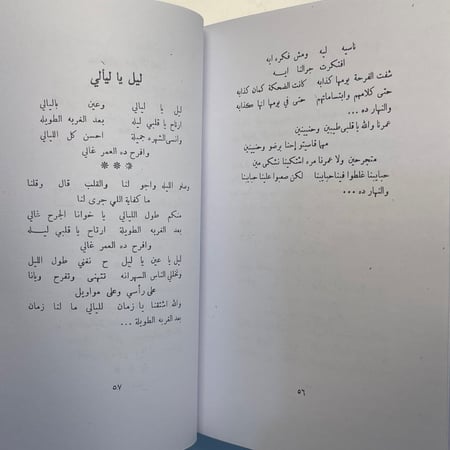 ناسيه ليه ومش فكره ايه
افتكرت جرالنا ايــه
شفت الفرحة يومها كدابه كانت الضحكة كمان كدابه
حتى كلامهم وابتساماتهم حتى في يومها انها كدابه
والنهار ده ...
عمرنا والله يا قلبي طيبين وحنينين
مهما قاسيتو إحنا برضو وحنينين
متجرحين ولا عمرنا مره اشتكينا نشتكى مين
حبايبنا غلطوا فينا حبايبنا لكن صعبوا علينا حبايبنا
والنهار ده ...
٥٦
ليل يا ليالي
ليل يا ليالي وعين ياليالي
ارتاح يا قلبي ليله بعد الغربه الطويله
وانسى الشهره جميلة احسن كل الليالي
وافرح ده العمر غالي
***
وسلم الليله واجو لنا والقلب قال وقلنا
ما كفاية اللي جرى لنا
منكم طول الليالي يا خوانا الجرح غالي
بعد الغربه الطويلة ارتاح يا قلبي ليـله
وافرح ده العمر غالي
ليل يا عين يا ليل ح نغني طول الليل
ونخلي الناس السهرانه تتهنى وتفرح ويانا
على رأسي وعلى مواويل
والله اشتقنا يا زمان لليالي ما لنا زمان
بعد الغربه الطويلة ...
٥٧